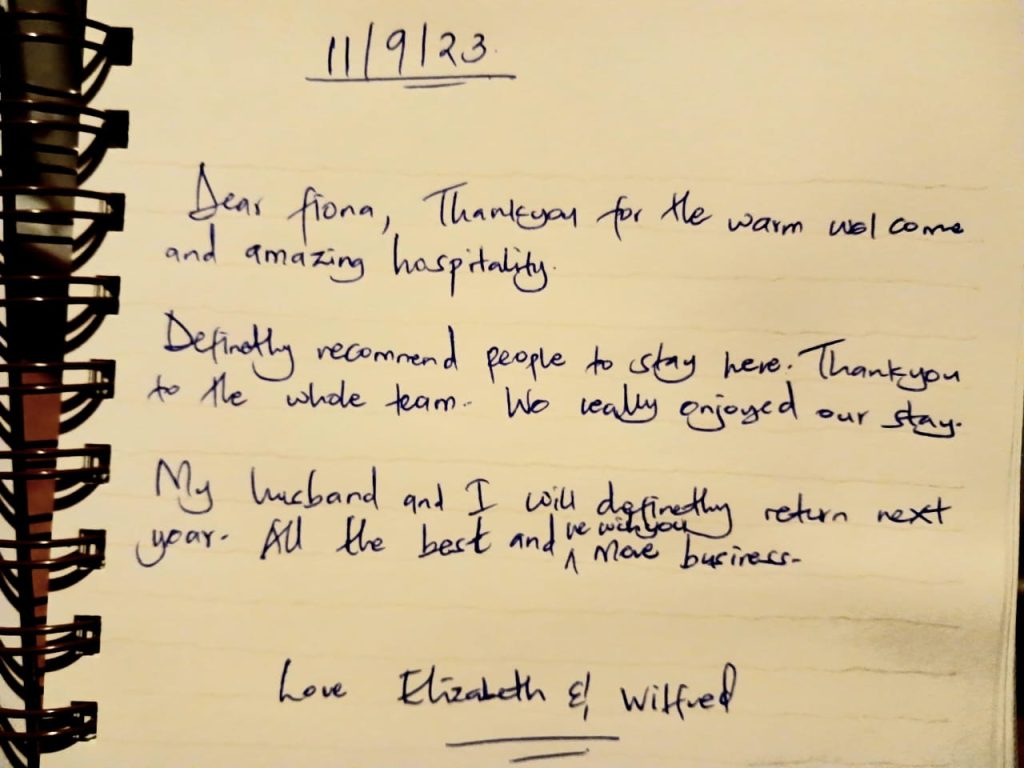 11/9/23.
Dear fiona, Thankyou for the warm welcome
and amazing hospitality.
Definethy recommend people to stay here. Thankyou
to the whole team. We really enjoyed our stay.
My husband and I will definethy return next
year. All the best and ^ we wish you more business.
Love Elizabeth & Wilfred